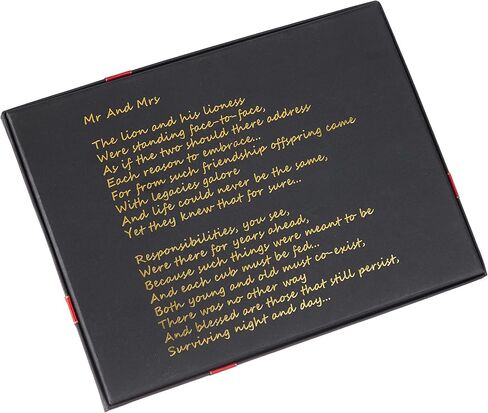 Mr And Mrs
The lion and his lioness
Were standing face-to-face,
As if the two should there address
Each reason to embrace...
For from such friendship offspring came
With legacies galore
And life could never be the same,
Yet they knew that for sure...
Responsibilities, you see,
Were there for years ahead,
Because such things were meant to be
And each cub must be fed...
Both young and old must co-exist,
There was no other way
And blessed are those that still persist,
Surviving night and day...